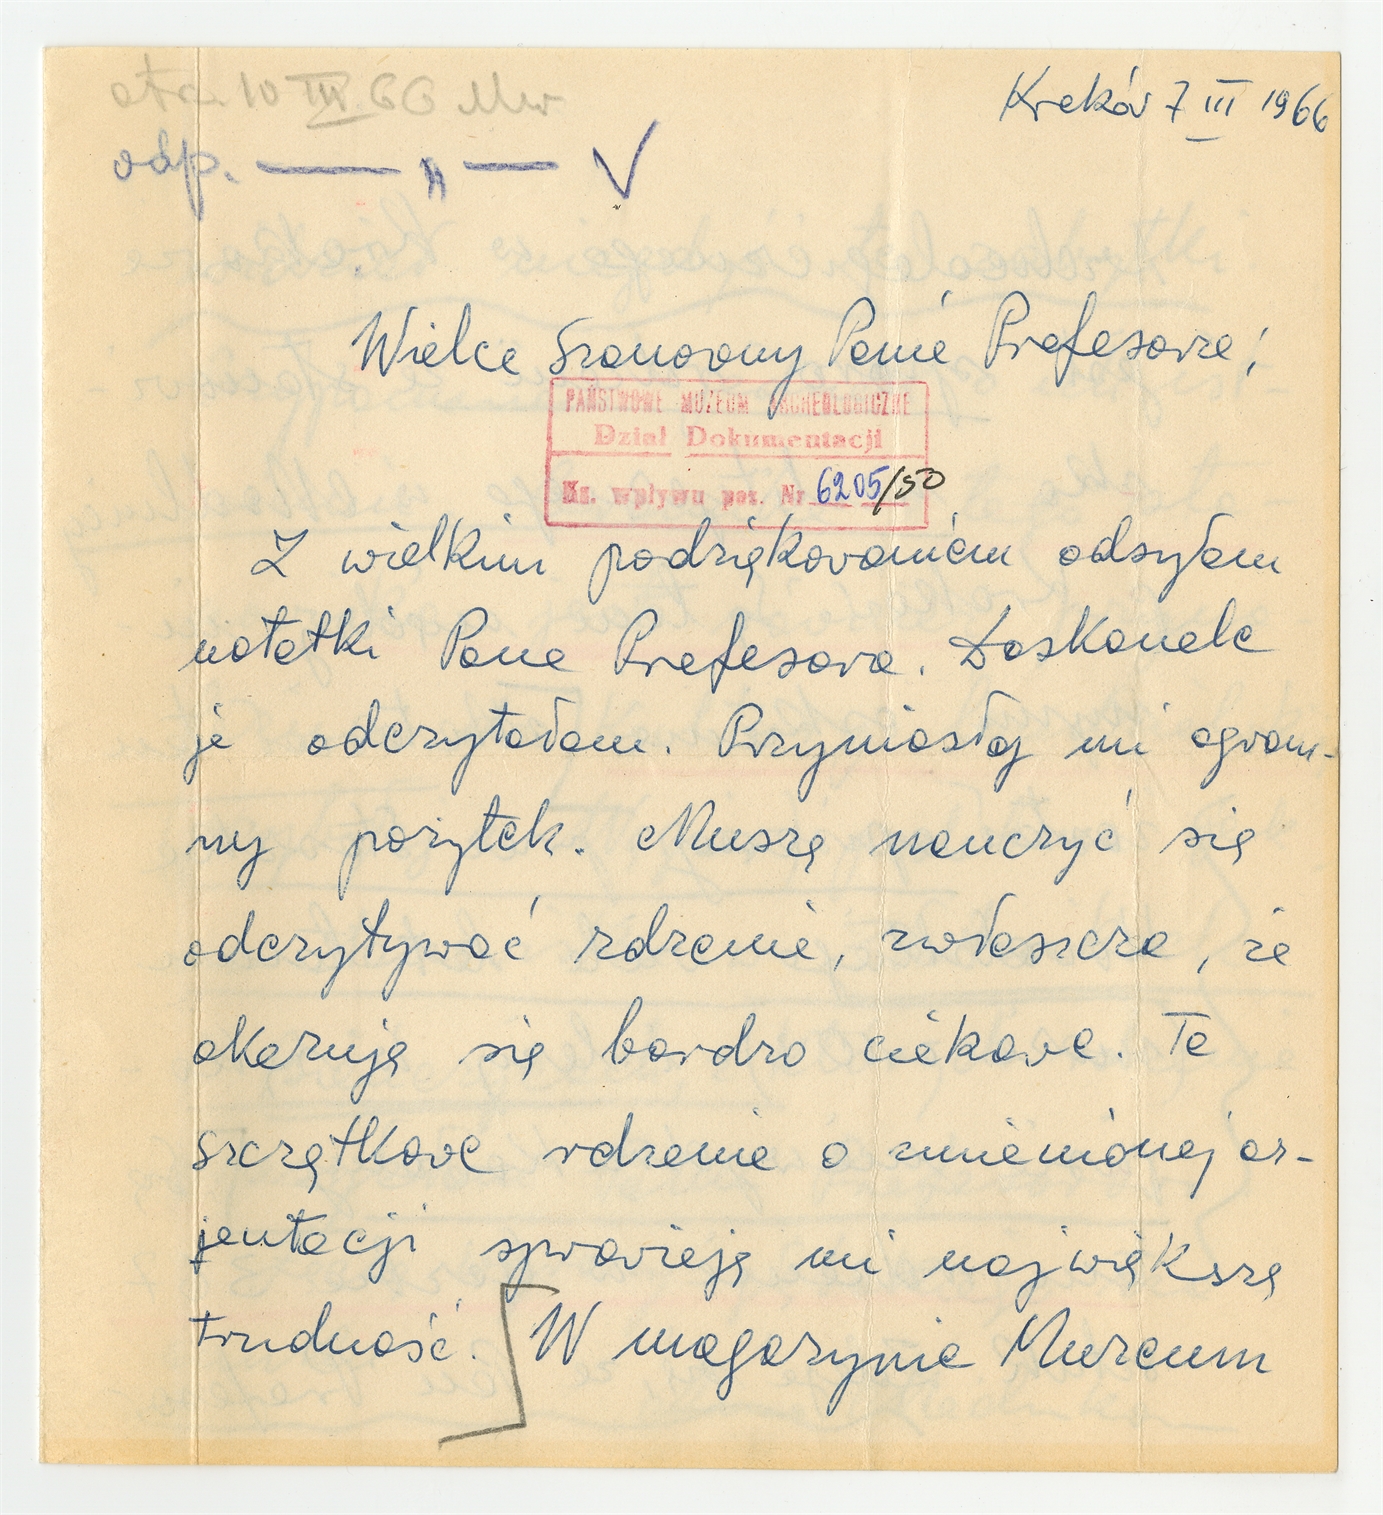 otrz. 10 III 66 Mw
odp. — „ — V
Kraków 7 III 1966
Wielce Szanowny Panie Profesorze!
PAŃSTWOWE MUZEUM ARCHEOLOGICZNE
Dział Dokumentacji
Ks. wpływu poz. Nr 6205/50
Z wielkim podziękowaniem odsyłam
notatki Pana Profesora. Doskonale
je odczytałam. Przyniosły mi ogrom-
ny pożytek. Muszę nauczyć się
odczytywać rdzenie, zwłaszcza, że
okazują się bardzo ciekawe. Te
szczątkowe rdzenie o zmienionej or-
jentacji sprawiają mi największą
trudność. W magazynie Muzeum